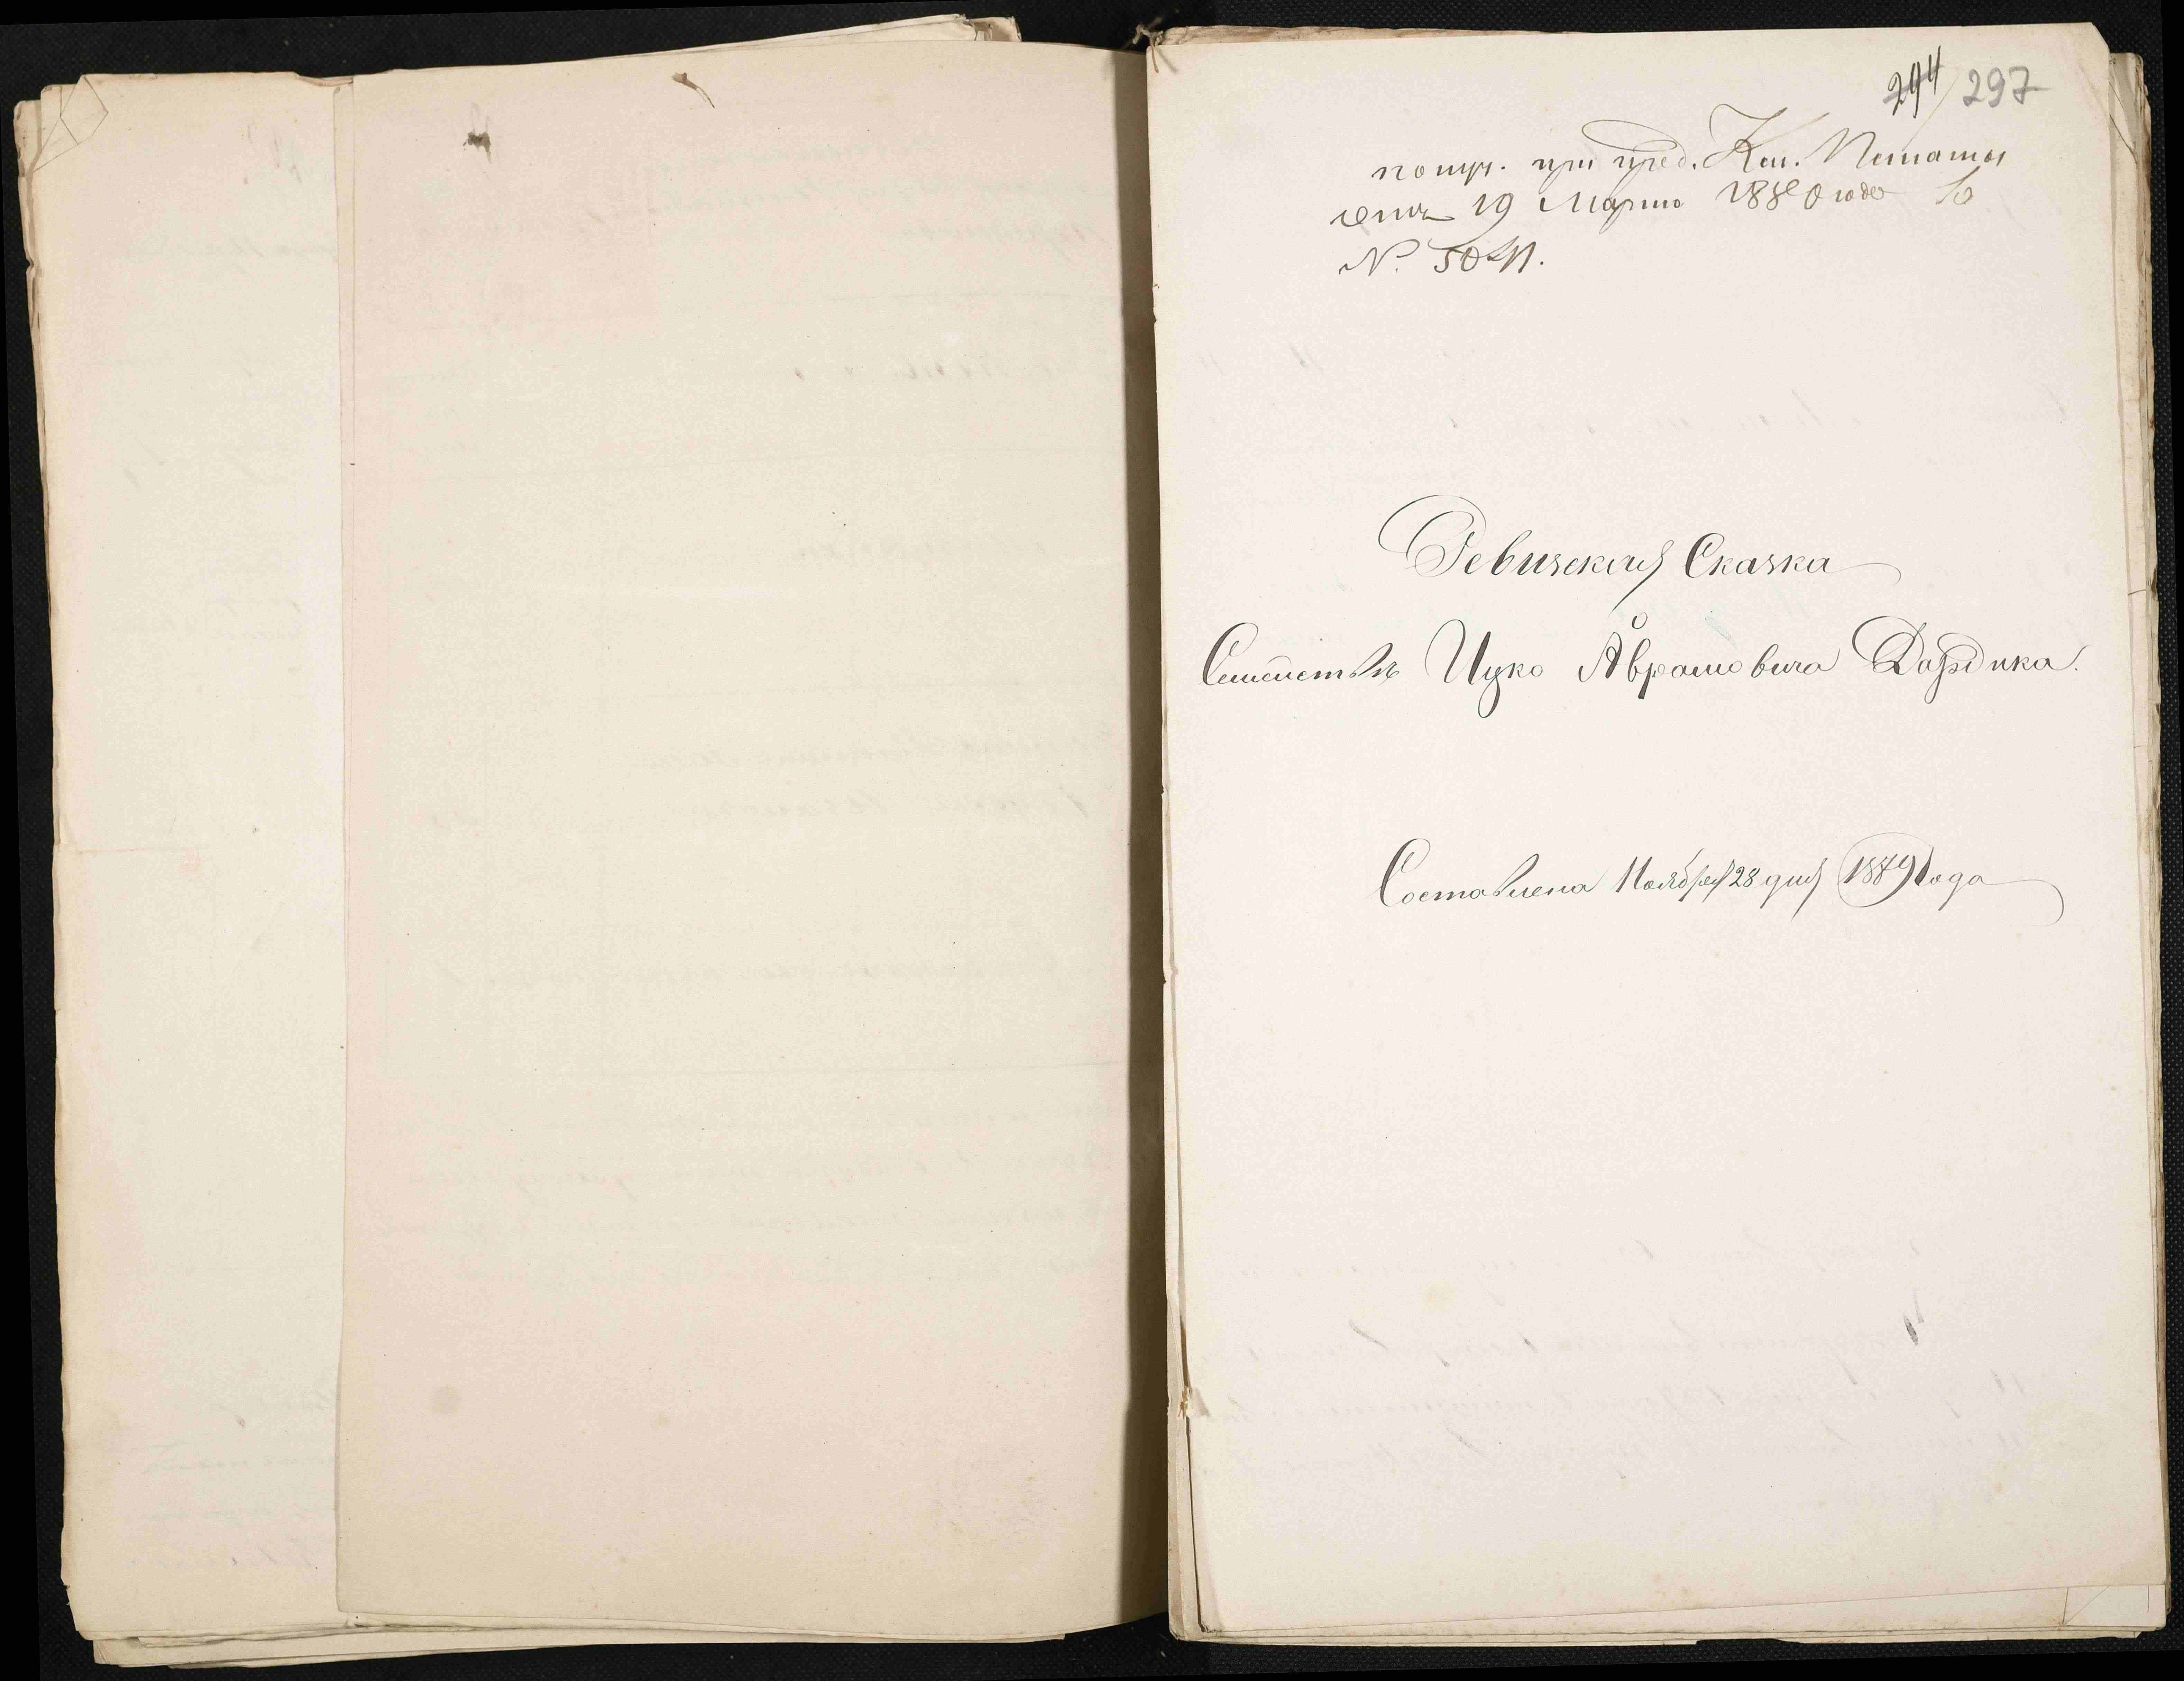 294 297
получ. при пред. Каз. Палаты
отъ 19 Марта 1880 года за
№ 5041.
Ревизская Сказка
Семейства Ицко Аврамовича Дардика.
Составлена Ноября 28 дня 1879 года